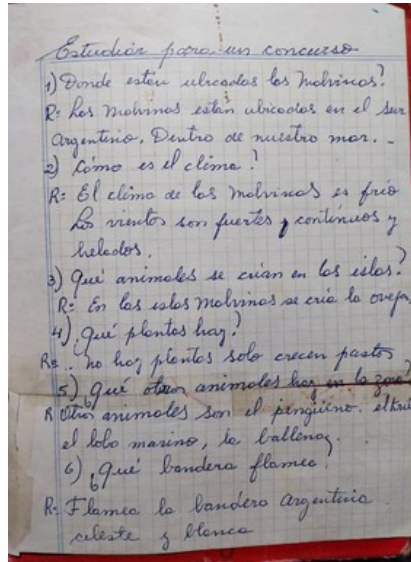 Estudiar para un concurso
1) Donde están ubicadas las Malvinas?
R: Las Malvinas están ubicadas en el sur
Argentino. Dentro de nuestro mar. -
2) Cómo es el clima?
R: El clima de las Malvinas es frio
Los vientos son fuertes, continuos y
helados.
3) Qué animales se crian en las islas?
R: En las islas Malvinas se cria la oveja
4) ¿Qué plantas hay?
R: .. no hay plantas solo crecen pastos
5) ¿Qué otros animales hay en la zona?
R Otros animales son el pingüino.
el lobo marino, la ballena,.
6) ¿Qué bandera flamea?
R: Flamea la bandera Argentina
celeste y blanca